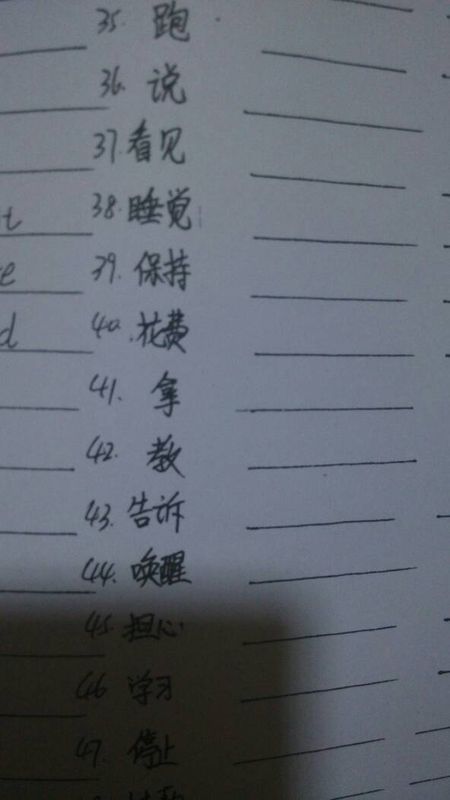 35. 跑
36. 说
37. 看见
38. 睡觉
39. 保持
40. 花费
41. 拿
42. 教
43. 告诉
44. 唤醒
45 担心
46 学习
47. 停止
t
e
d